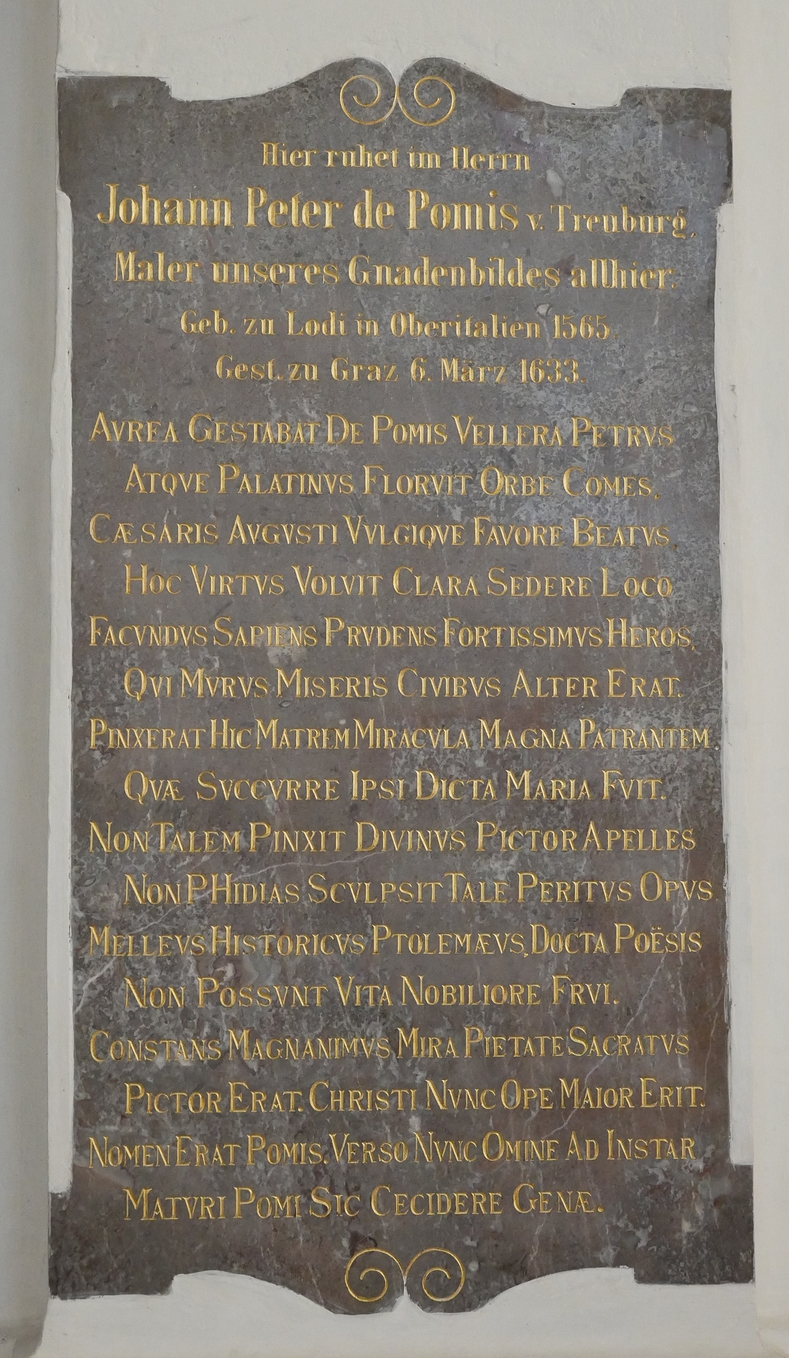 Hier ruhet im Herrn
Johann Peter de Pomis v. Treuburg.
Maler unseres Gnadenbildes allhier.
Geb. zu Lodi in Oberitalien 1565.
Gest. zu Graz 6. März 1633.
AVREA GESTABAT DE POMIS VELLERA PETRVS
ATQVE PALATINVS FLORVIT ORBE COMES.
CÆSARIS AVGVSTI VVLGIQVE FAVORE BEATVS.
HOC VIRTVS VOLVIT CLARA SEDERE LOCO
FACVNDVS SAPIENS PRVDENS FORTISSIMVS HEROS,
QVI MVRVS MISERIS CIVIBVS ALTER ERAT.
PINXERAT HIC MATREM MIRACVLA MAGNA PATRANTEM.
QVÆ SVCCVRRE IPSI DICTA MARIA FVIT.
NON TALEM PINXIT DIVINVS PICTOR APELLES
NON PHIDIAS SCVLPSIT TALE PERITVS OPVS.
MELLEVS HISTORICVS PTOLEMÆVS, DOCTA POËSIS
NON POSSVNT VITA NOBILIORE FRVI.
CONSTANS MAGNANIMVS MIRA PIETATE SACRATVS
PICTOR ERAT. CHRISTI NVNC OPE MAIOR ERIT.
NOMEN ERAT POMIS. VERSO NVNC OMINE AD INSTAR
MATVRI POMI SIC CECIDERE GENÆ.